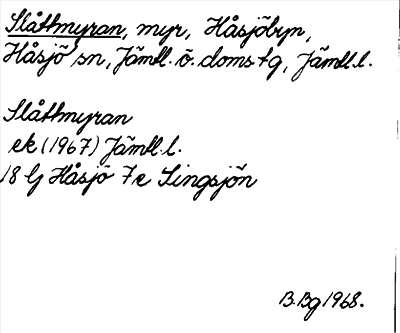 Slåttmyran, myr, Håsjöbyn,
Håsjö sn, Jämtl. ö. doms +g, Jämtl. l.
Slåttmyran
ek (1967) Jämtl. l.
18 G Håsjö 7e Singsjön
B. Bg 1968.